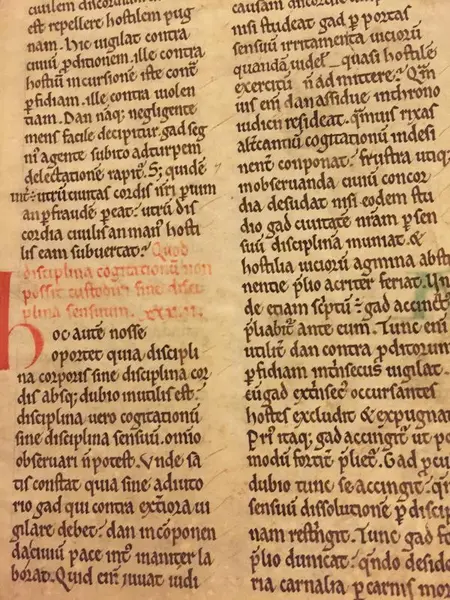 cuilem discordie opus
est repellere hostilem pug
nam. Hic uigilat contra
ciuiũ proditionem. ille contra
hostiũ incursione iste contͣ
ꝑfidiam. ille contra uiolen
tiam. Dan nãq; negligente
mens facile decipitur. gad seg
nit̾ agente subito ad turpem
delectatione rapit᷑. S; quidẽ
int̾ utrũ ciuitas cordis nr̃i ꝑ uim
an ꝑ fraudẽ ꝑeat. utrũ dis
cordia ciuilis an man᷒ hosti
lis eam subuertat. Quod
disciplina cogitationũ non
possit custodiri sine disci
plina sensuum. XXVII.
Hoc autẽ nosse
oportet quia discipli
na corporis sine disciplina cor
dis absq; dubio inutilis est.
disciplina uero cogitationũ
sine disciplina sensuũ. om̃io
obseruari ñ potest. Vnde sa
tis constat quia sine adiuto
rio gad qui contra ext̾iora ui
gilare debet. dan in cõponen
da ciuiũ pace int᷒ inaniter la
borat. Quid eni᷒ iuuat iudi
nisi studeat gad ꝑ portas
sensuũ irritamenta uiciorũ
quandã uidel̃ quasi hostilẽ
exercitũ ñ admittere. Qm̃
uis eni᷒ dan assidue in throno
iudicii resideat. q̃muis rixas
alt̾cantiũ cogitationũ indesi
nent̾ conponat. frustra utiq;
in obseruanda ciuiũ concor
dia desudat nisi eodem stu
dio gad ciuitatẽ nr̃am ꝑ sen
suũ disciplina muniat. &
hostilia uiciorũ agmina absti
nentie p̃lio acriter feriat. Vn
de etiam sc̃ptũ ÷ gad accinct᷒
p̃liabit᷑ ante eum. Tunc eni᷒
utilit̾ dan contra ꝓditorum
ꝑfidiam int̾nsecus uigilat.
cũ gad ext̾nsec᷒ occursantes
hostes excludit & expugnat
Pri᷒ itaq; gad accingit᷑ ut po
modũ fortit̾ p̃liet᷑. Gad ꝓcu
dubio tunc se accingit. qn̄
sensuũ dissolutione ꝑ discip
nam restringit. Tunc gad fo
p̃lio dimicat. q̃ndo deside
ria carnalia ꝑ carnis mor